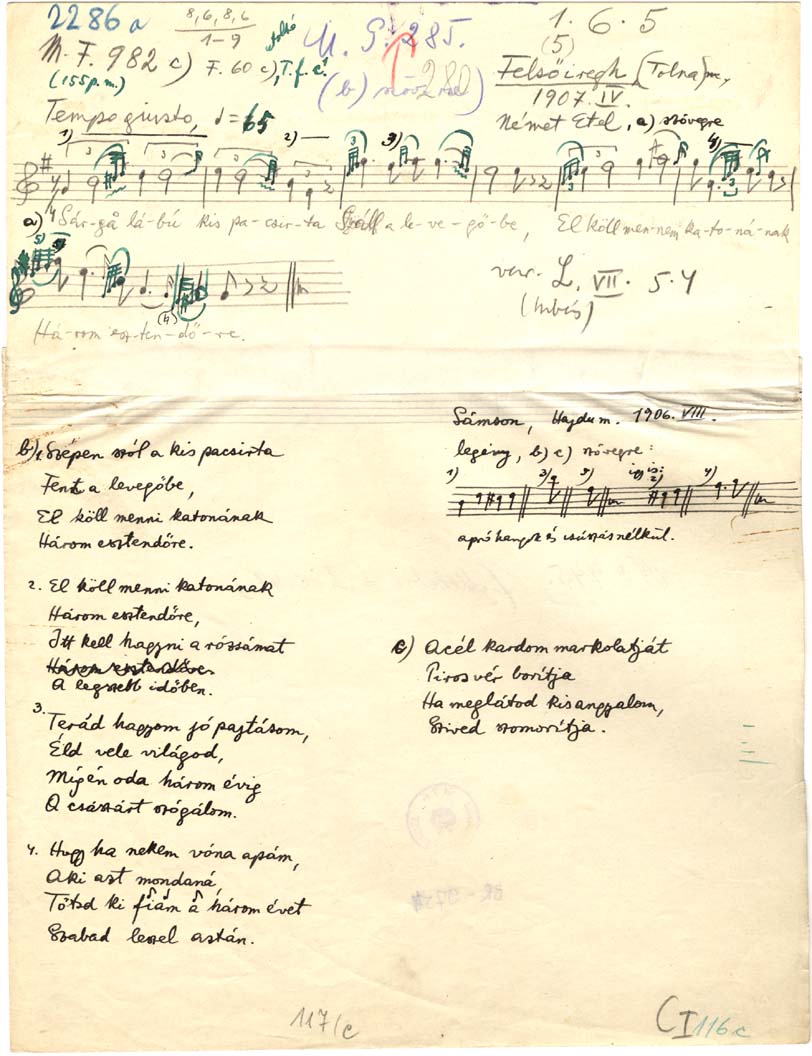 2286a
8, 6, 8, 6
1–9
1. 6. 5
(5)
M. F. 982 c) F. 60 c), T. f. c!
(155 p. m.)
M. S. 285.
280
(b)
Felsőiregh (Tolna) m,
1907. IV.
Tempo giusto, = 65
Német Etel, a) szövegre
1) 2) 3) 4)
a) Sár-ga lá-bú kis pa-csir-ta Száll a le-ve-gő-be, El köll men-nem ka-to-ná-nak
5)
(4)
Há-rom esz-ten-dő-re.
var. L. VII. 5. 4
b) 1. Szépen szól a kis pacsirta
Fent a levegőbe,
El köll menni katonának
Három esztendőre.
2. El köll menni katonának
Három esztendőre,
Itt kell hagyni a rózsámat
Három esztendőre
A legszebb időben.
3.
Terád hagyom jó pajtásom,
Éld vele világod,
Míg én oda három évig
A császárt szógálom.
4. Hogy ha nekem vóna apám,
Aki azt mondaná,
Tötsd ki fiám a három évet
Szabad leszel aztán.
Sámson, Hajdu m. 1906. VIII.
legény, b) c) szövegre:
1) 3) 5) így is: 2) 4)
apró hangok és csúszás nélkül.
c) Acél kardom markolatját
Piros vér borítja
Ha meglátod kisangyalom,
Szived szomorítja.
117/c
C I 116 c